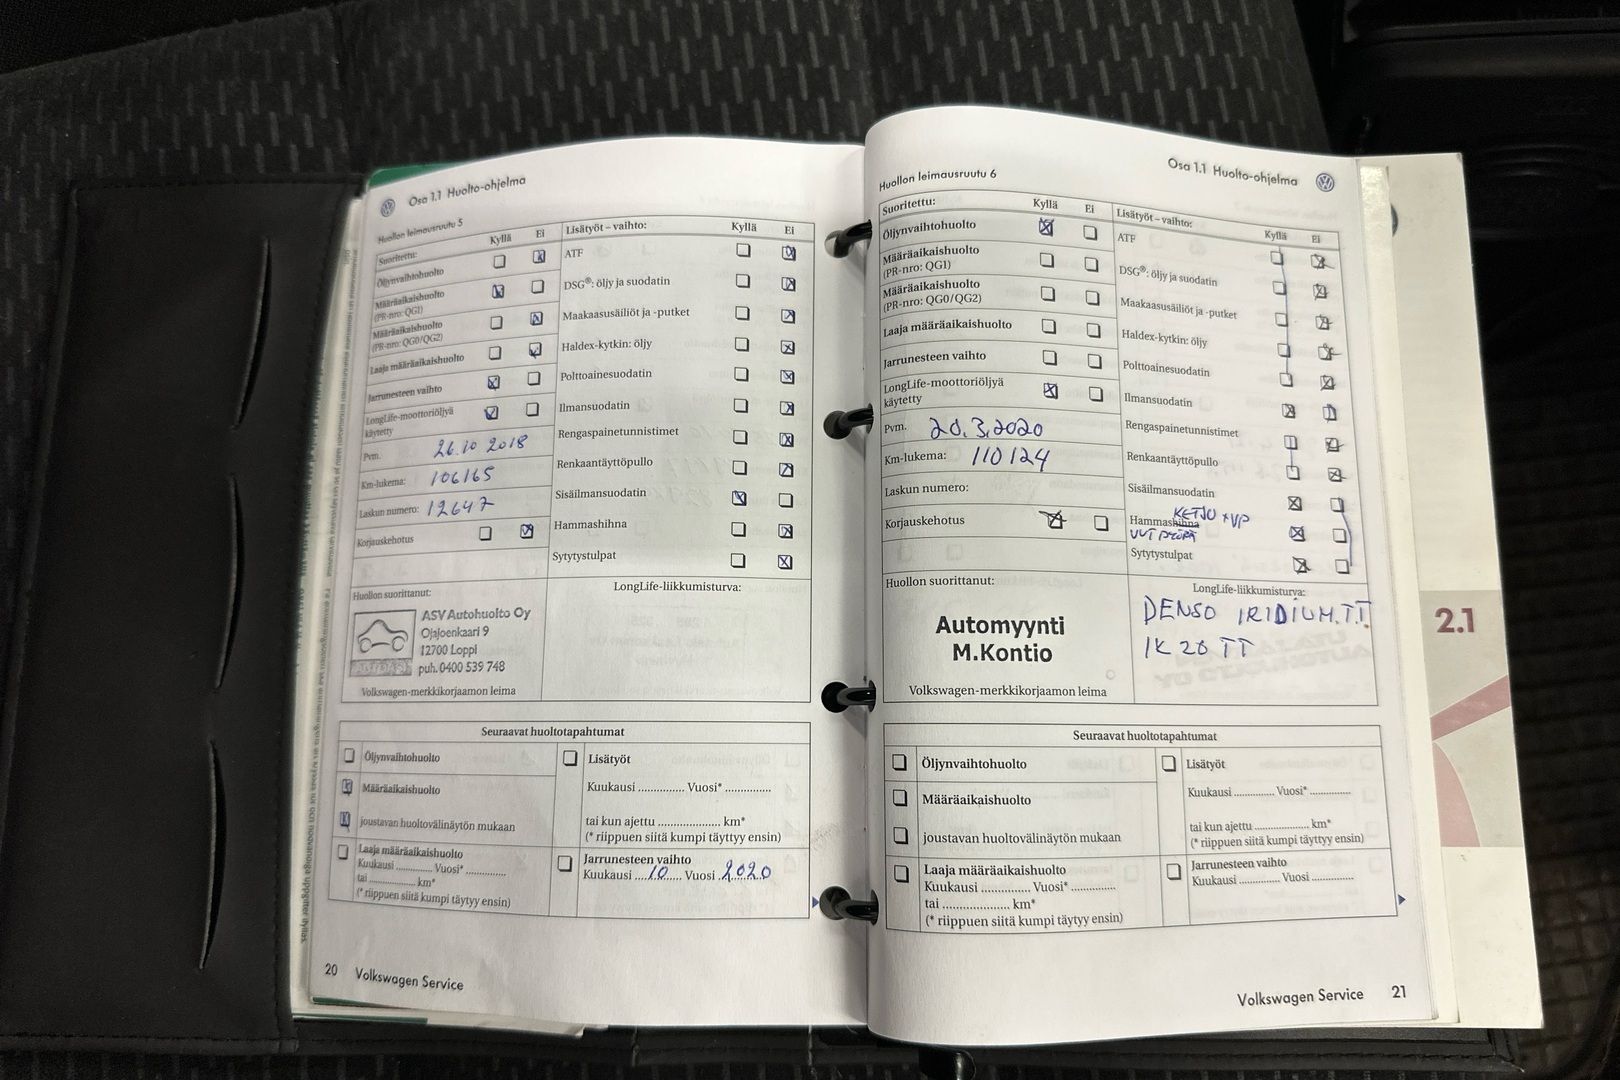 Osa 1.1 Huolto-ohjelma
Huollon leimausruutu 5
Suoritettu:
Kyllä Ei
Öljynvaihtohuolto
Määräaikaishuolto
(PR-nro: QG1)
Määräaikaishuolto
(PR-nro: QG0/QG2)
Laaja määräaikaishuolto
Jarrunesteen vaihto
LongLife-moottoriöljyä
käytetty
Pvm. 26.10 2018
Km-lukema: 106165
Laskun numero: 12647
Korjauskehotus
Lisätyöt – vaihto: Kyllä Ei
ATF
DSG®: öljy ja suodatin
Maakaasusäiliöt ja -putket
Haldex-kytkin: öljy
Polttoainesuodatin
Ilmansuodatin
Rengaspainetunnistimet
Renkaantäyttöpullo
Sisäilmansuodatin
Hammashihna
Sytytystulpat
Huollon suorittanut:
ASV Autohuolto Oy
Ojajoenkaari 9
12700 Loppi
puh. 0400 539 748
Volkswagen-merkkikorjaamon leima
LongLife-liikkumisturva:
Seuraavat huoltotapahtumat
Öljynvaihtohuolto
Määräaikaishuolto
joustavan huoltovälinäytön mukaan
Laaja määräaikaishuolto
Kuukausi .............. Vuosi* ..............
tai .................... km*
(* riippuen siitä kumpi täytyy ensin)
Lisätyöt
Kuukausi .............. Vuosi* ..............
tai kun ajettu .................... km*
(* riippuen siitä kumpi täyttyy ensin)
Jarrunesteen vaihto
Kuukausi ....10.... Vuosi .2020
20 Volkswagen Service
Osa 1.1 Huolto-ohjelma
Huollon leimausruutu 6
Suoritettu: Kyllä Ei
Öljynvaihtohuolto
Määräaikaishuolto
(PR-nro: QG1)
Määräaikaishuolto
(PR-nro: QG0/QG2)
Laaja määräaikaishuolto
Jarrunesteen vaihto
LongLife-moottoriöljyä
käytetty
Pvm. 20.3.2020
Km-lukema: 110124
Laskun numero:
Korjauskehotus
Lisätyöt – vaihto:
Kyllä Ei
ATF
DSG®: öljy ja suodatin
Maakaasusäiliöt ja -putket
Haldex-kytkin: öljy
Polttoainesuodatin
Ilmansuodatin
Rengaspainetunnistimet
Renkaantäyttöpullo
Sisäilmansuodatin
KETJU + VP
Hammashihna
Sytytystulpat
Huollon suorittanut:
Automyynti
M.Kontio
Volkswagen-merkkikorjaamon leima
LongLife-liikkumisturva:
DENSO IRIDIUM.T.T.
IK 20 TT
Seuraavat huoltotapahtumat
Öljynvaihtohuolto
Määräaikaishuolto
joustavan huoltovälinäytön mukaan
Laaja määräaikaishuolto
Kuukausi .............. Vuosi* ..............
tai .................... km*
(* riippuen siitä kumpi täytyy ensin)
Lisätyöt
Kuukausi .............. Vuosi* ..............
tai kun ajettu .................... km*
(* riippuen siitä kumpi täyttyy ensin)
Jarrunesteen vaihto
Kuukausi .............. Vuosi ..............
Volkswagen Service 21
2.1